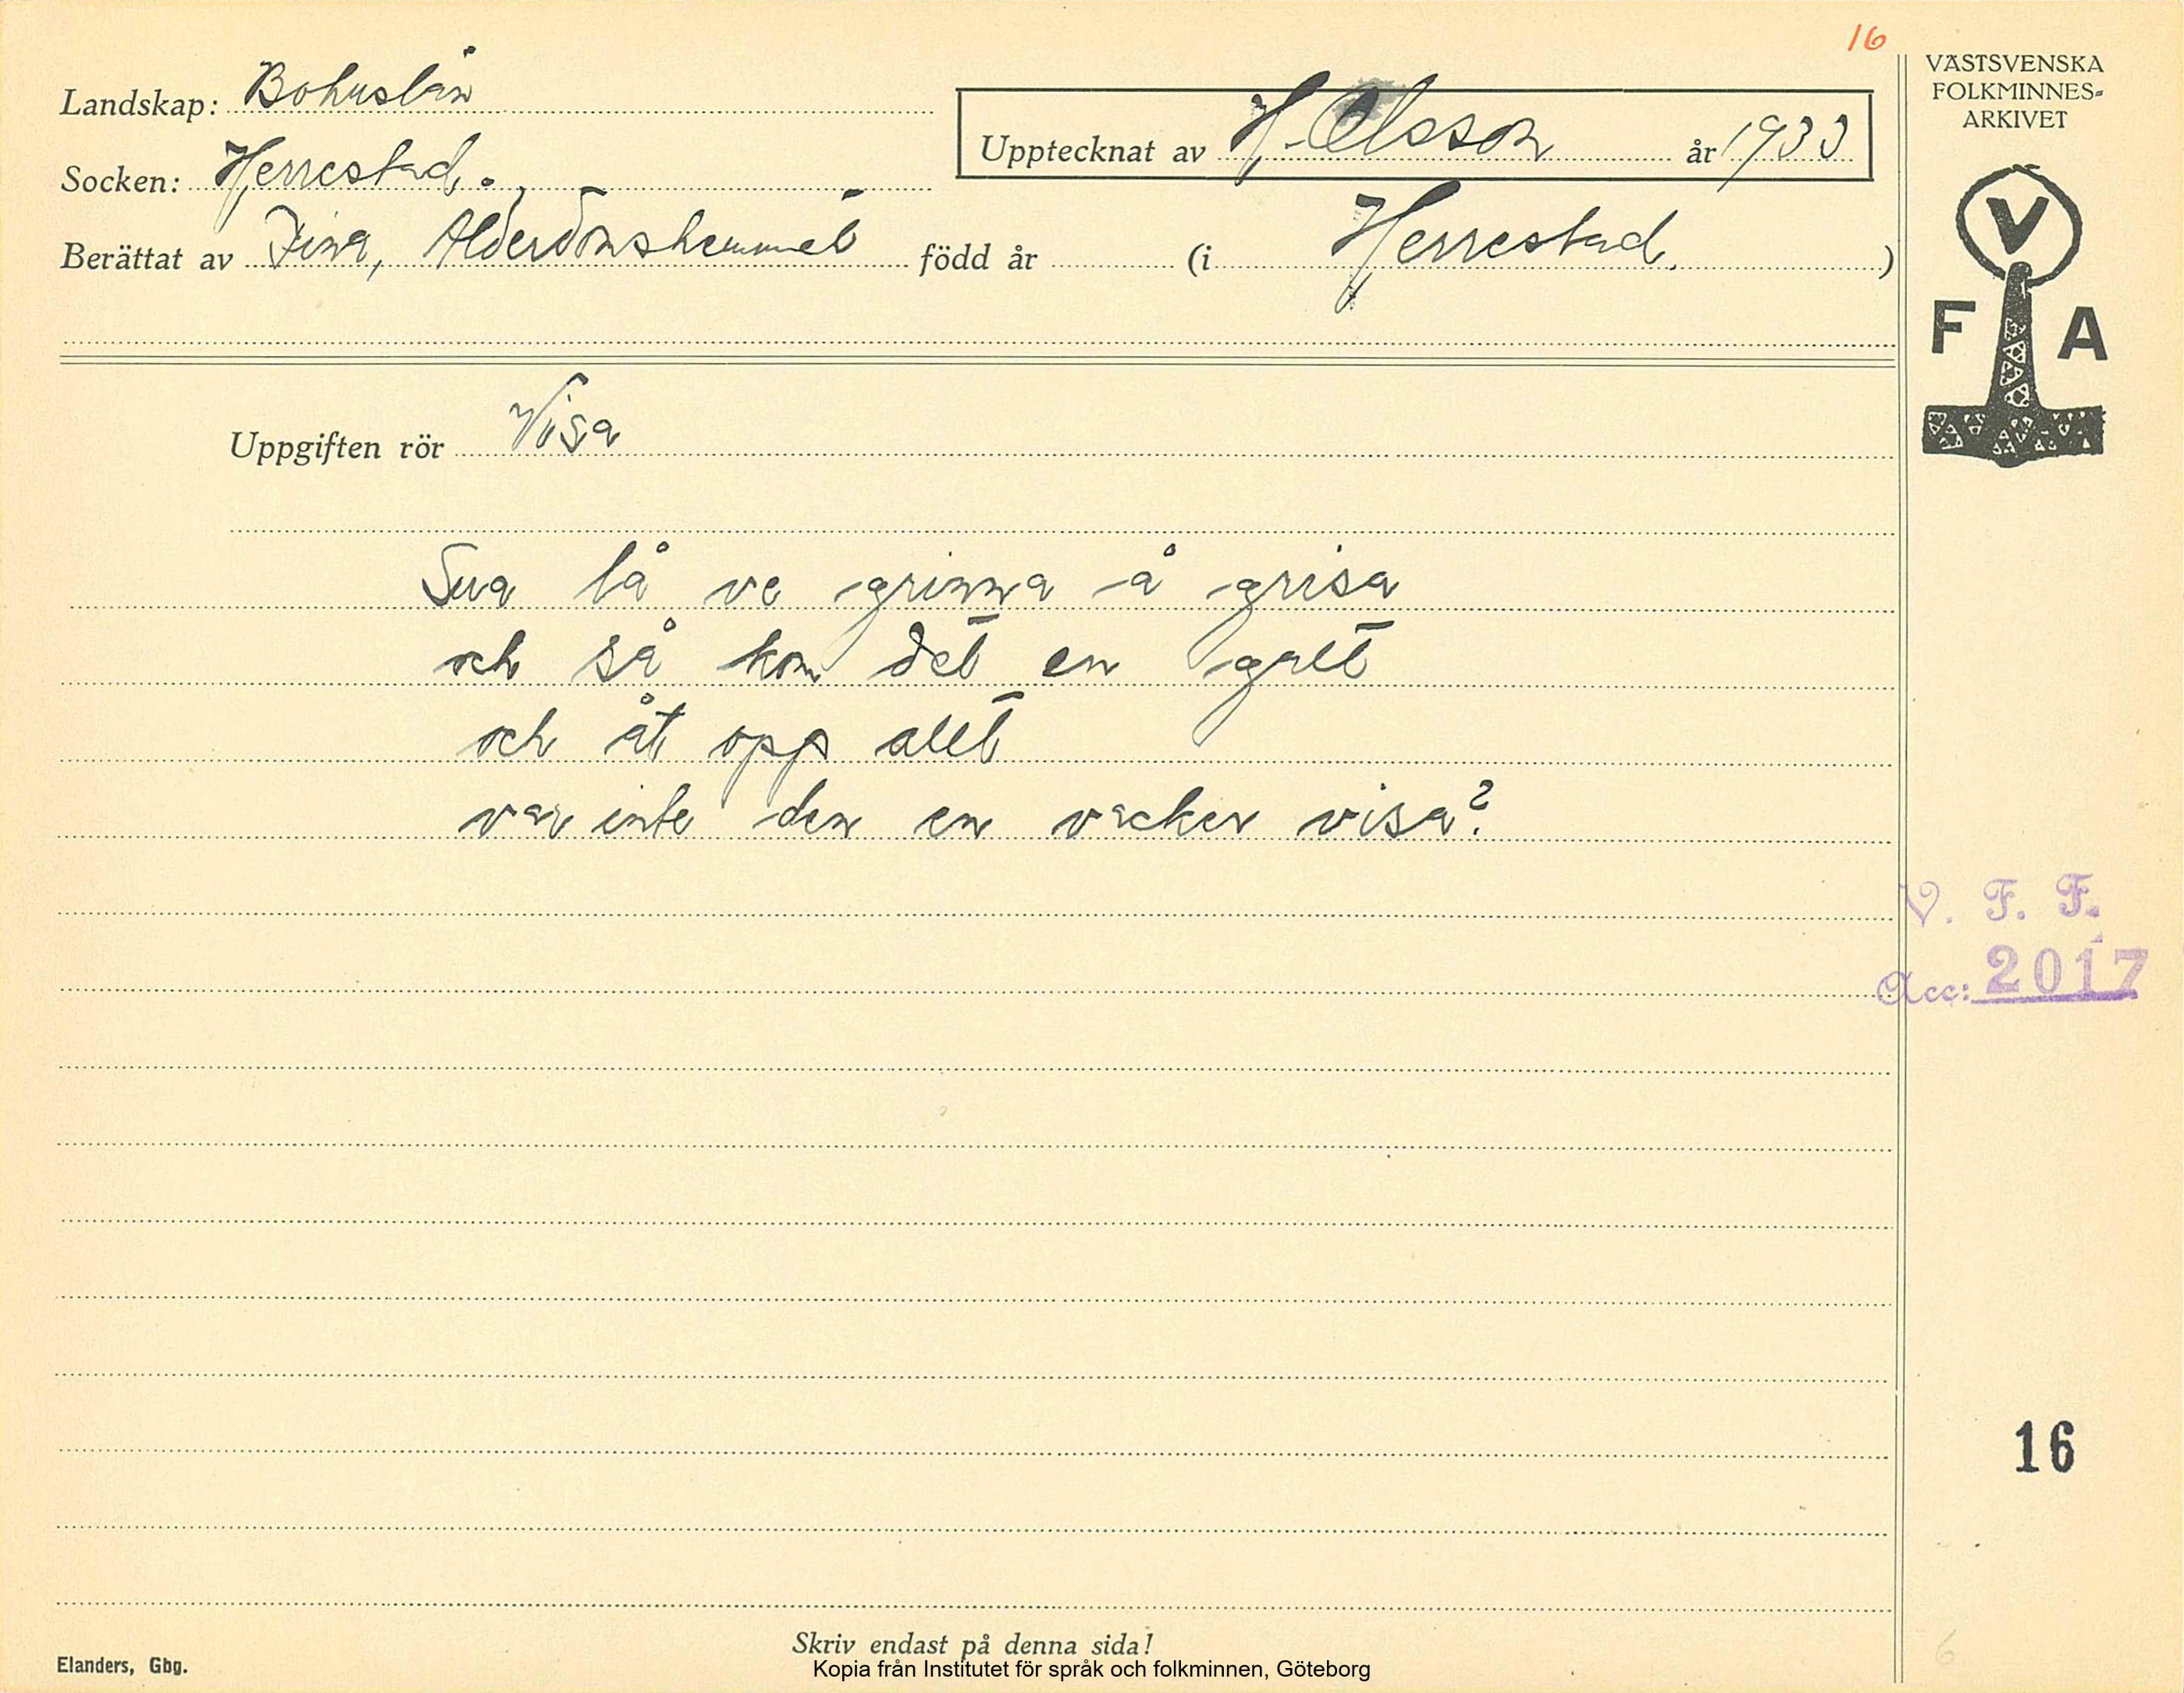 16
Landskap: Bohuslän
Socken: Herrestad.
Upptecknat av H. Olsson år 1933
Berättat av Fina, Ålderdomshemmet född år (i Herrestad.)
Uppgiften rör Visa
Sua lå ve grinna å grisa
och så kom det en galt
och åt opp allt
var inte den en vacker visa?
VÄSTSVENSKA
FOLKMINNES-
ARKIVET
V
F A
V. F. F.
Acc: 2017
16
6
Skriv endast på denna sida!
Elanders, Gbg.
Kopia från Institutet för språk och folkminnen, Göteborg